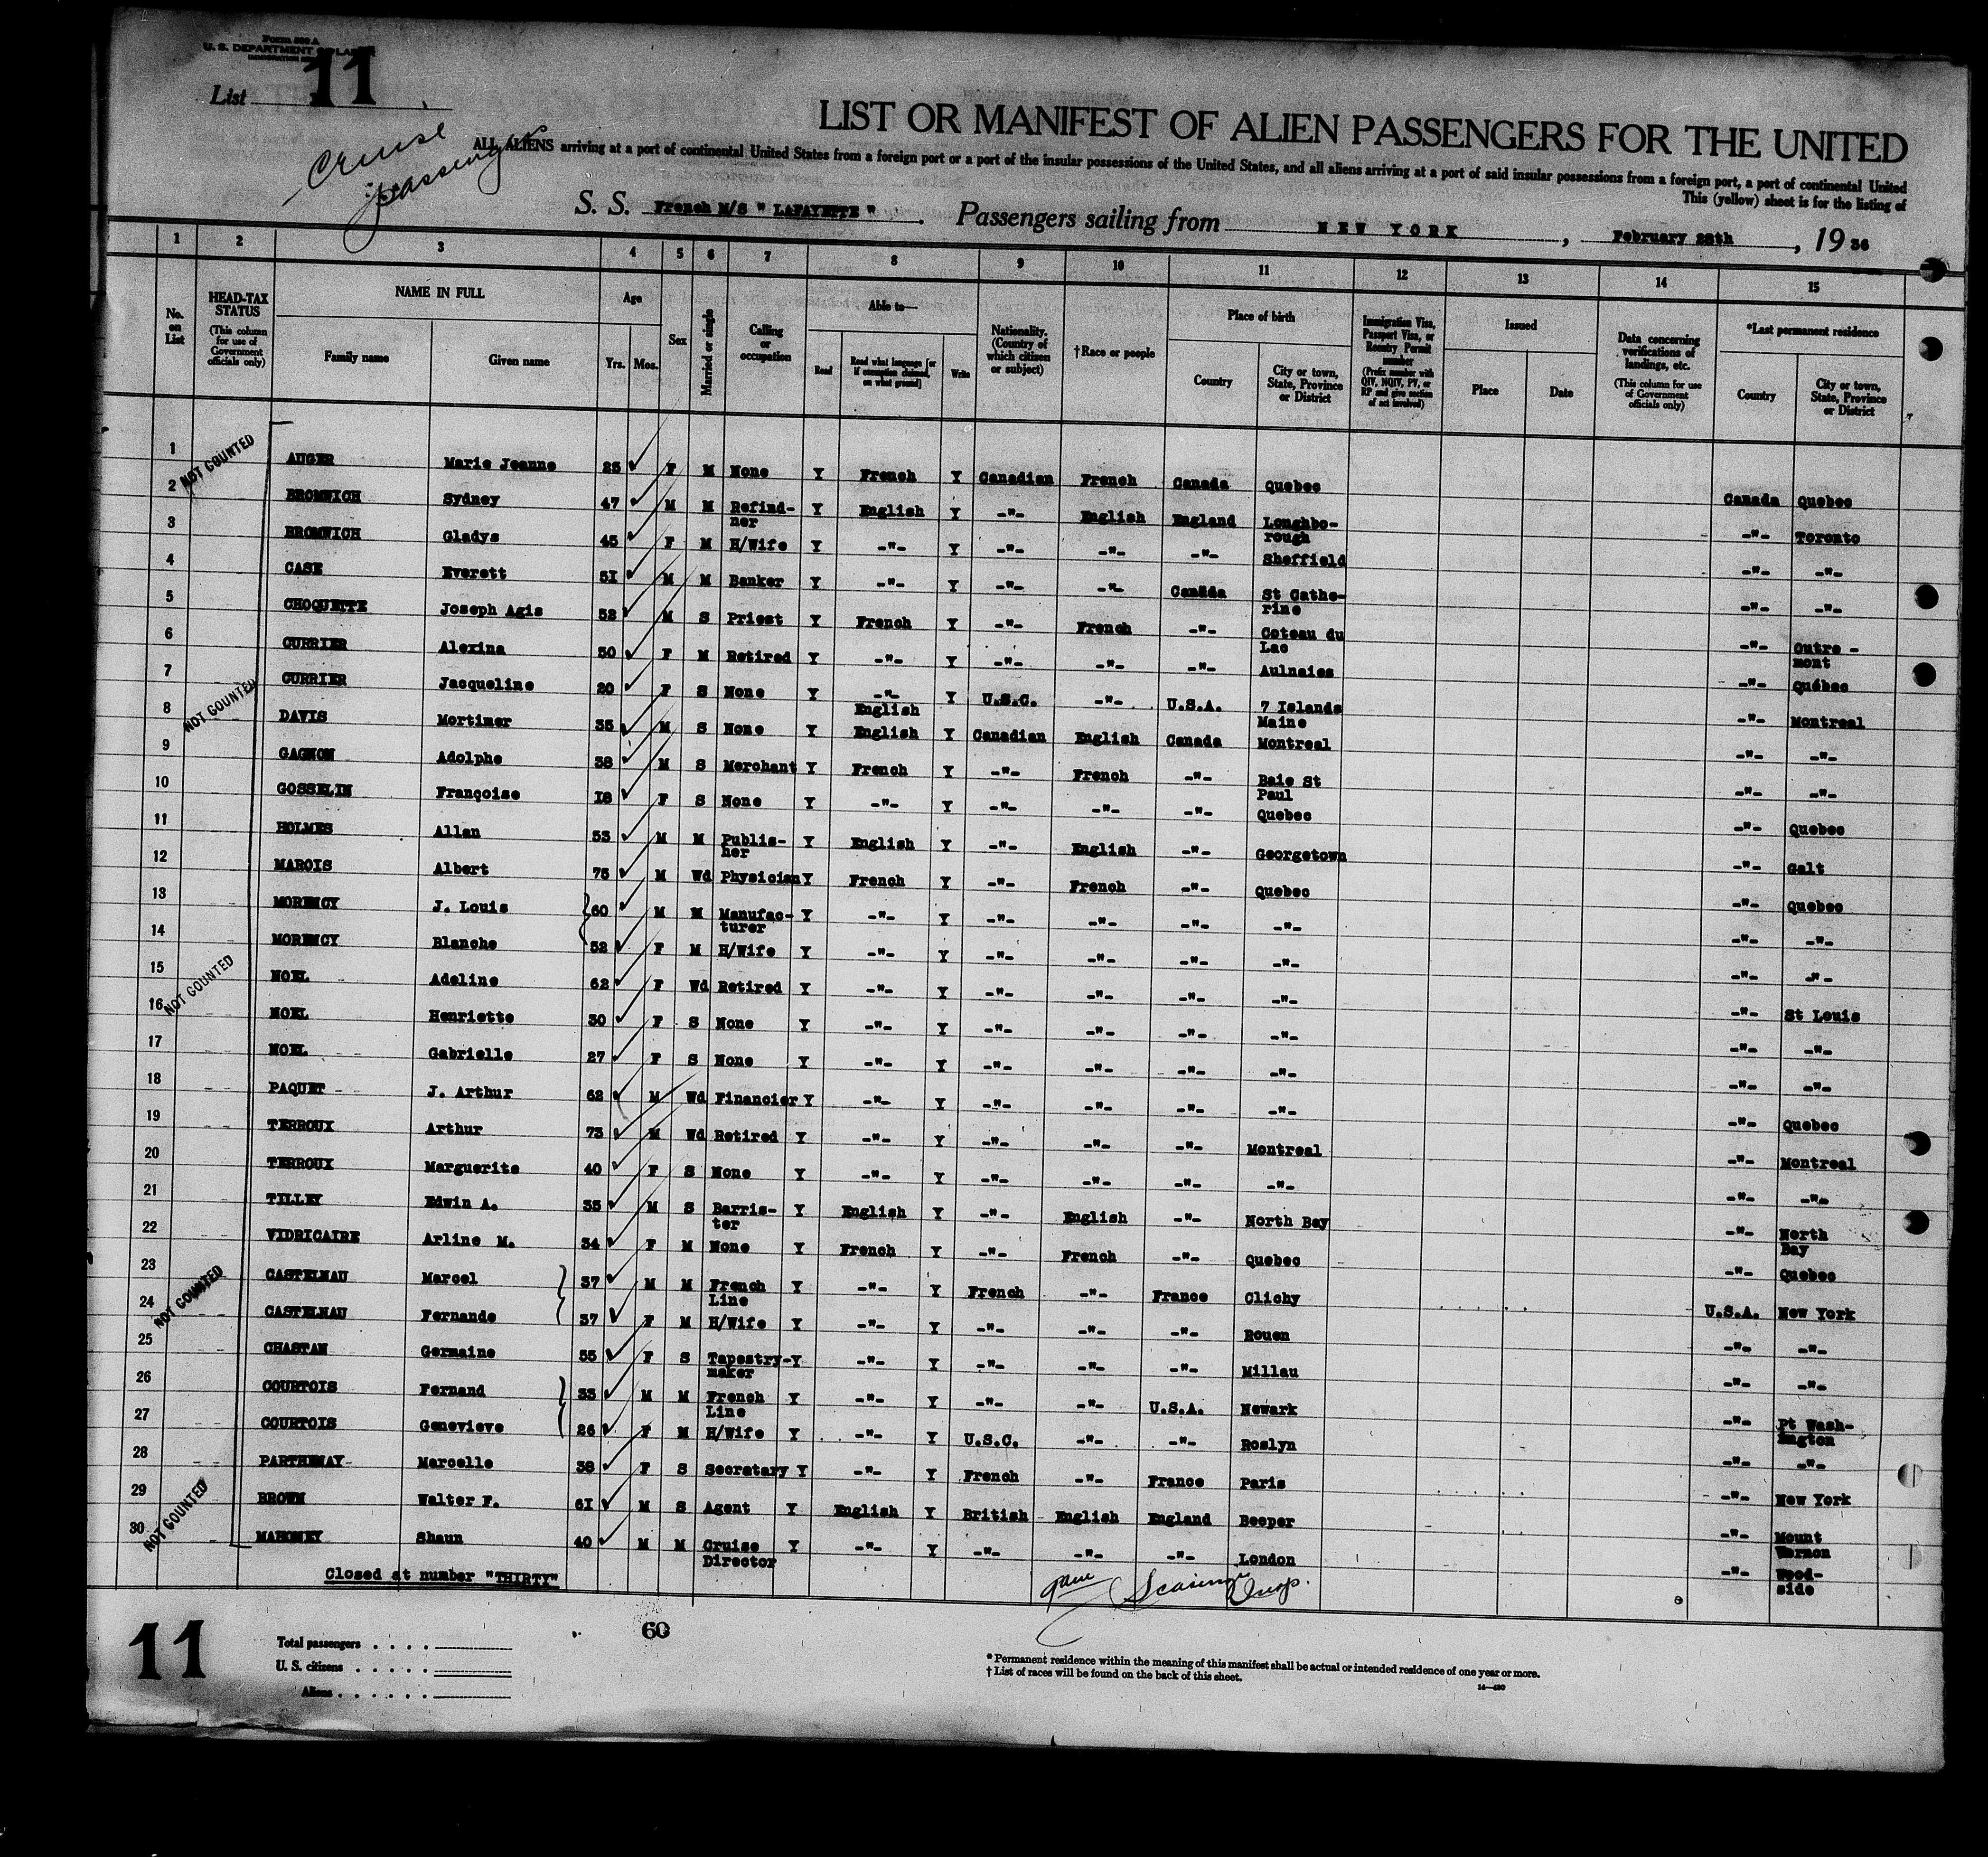 Form 500 A
U. S. DEPARTMENT OF LABOR
List 11
Cruise
passengers
LIST OR MANIFEST OF ALIEN PASSENGERS FOR THE UNITED
ALL ALIENS arriving at a port of continental United States from a foreign port or a port of the insular possessions of the United States, and all aliens arriving at a port of said insular possessions from a foreign port, a port of continental United
This (yellow) sheet is for the listing of
S. S. French M/S " LAFAYETTE " . Passengers sailing from NEW YORK , February 28th , 19 36
1 2 3 4 5 6 7 8 9 10 11 12 13 14 15
No. on List
HEAD-TAX STATUS
(This column for use of Government officials only)
NAME IN FULL
Family name Given name
Age
Yrs. Mos.
Sex
Married or single
Calling or occupation
Able to—
Read Read what language [or if exemption claimed, on what ground] Write
Nationality. (Country of which citizen or subject)
†Race or people
Place of birth
Country City or town, State, Province or District
Immigration Visa, Passport Visa, or Reentry Permit number
(Prefix number with QIV, NQIV, PV, or RP and give section of act involved)
Issued
Place Date
Data concerning verifications of landings, etc.
(This column for use of Government officials only)
*Last permanent residence
Country City or town, State, Province or District
1 AUGER Marie Jeanne 25 F M None Y French Y Canadian French Canada Quebec Canada Quebec
2 BROMWICH Sydney 47 M M Refind-ner Y English Y -"- English England Loughbo-rough -"- Toronto
3 BROMWICH Gladys 45 F M H/Wife Y -"- Y -"- -"- -"- Sheffield -"- -"-
4 CASE Everett 51 M M Banker Y -"- Y -"- -"- Canada St Cathe-rine -"- -"-
5 CHOQUETTE Joseph Agis 52 M S Priest Y French Y -"- French -"- Coteau du Lac -"- Outre - mont
6 CURRIER Alexina 50 F M Retired Y -"- Y -"- -"- -"- Aulnaies -"- Québec
7 CURRIER Jacqueline 20 F S None Y -"- English Y U.S.C. -"- U.S.A. 7 Islands Maine -"- Montreal
8 DAVIS Mortimer 35 M S None Y English Y Canadian English Canada Montreal -"- -"-
9 GAGNON Adolphe 38 M S Merchant Y French Y -"- French -"- Baie St Paul -"- -"-
10 GOSSELIN Françoise 18 F S None Y -"- Y -"- -"- -"- Quebec -"- Quebec
11 HOLMES Allan 53 M M Publis-her Y English Y -"- English -"- Georgetown -"- Galt
12 MAROIS Albert 75 M Wd Physician Y French Y -"- French -"- Quebec -"- Quebec
13 MORENCY J. Louis 60 M M Manufac-turer Y -"- Y -"- -"- -"- -"- -"- -"-
14 MORENCY Blanche 52 F M H/Wife Y -"- Y -"- -"- -"- -"- -"- -"-
15 NOEL Adeline 62 F Wd Retired Y -"- Y -"- -"- -"- -"- -"- St Louis
16 NOEL Henriette 30 F S None Y -"- Y -"- -"- -"- -"- -"- -"-
17 NOEL Gabrielle 27 F S None Y -"- Y -"- -"- -"- -"- -"- -"-
18 PAQUET J. Arthur 62 M Wd Financier Y -"- Y -"- -"- -"- -"- -"- Quebec
19 TERROUX Arthur 73 M Wd Retired Y -"- Y -"- -"- -"- Montreal -"- Montreal
20 TERROUX Marguerite 40 F S None Y -"- Y -"- -"- -"- -"- -"- -"-
21 TILLEY Edwin A. 35 M S Barris-ter Y English Y -"- English -"- North Bay -"- North Bay
22 VIDRICAIRE Arline M. 34 F M None Y French Y -"- French -"- Quebec -"- Quebec
23 CASTELNAU Marcel 37 M M French Line Y -"- Y French -"- France Clichy U.S.A. New York
24 CASTELNAU Fernande 37 F M H/Wife Y -"- Y -"- -"- -"- Rouen -"- -"-
25 CHASTAN Germaine 55 F S Tapestry-maker Y -"- Y -"- -"- -"- Millau -"- -"-
26 COURTOIS Fernand 33 M M French Line Y -"- Y -"- -"- U.S.A. Newark -"- Pt Wash-ington
27 COURTOIS Genevieve 26 F M H/Wife Y -"- Y U.S.C. -"- -"- Roslyn -"- -"-
28 PARTHENAY Marcelle 38 F S Secretary Y -"- Y French -"- France Paris -"- New York
29 BROWN Walter F. 61 M S Agent Y English Y British English England Beeper -"- Mount Vernon
30 MAHONEY Shaun 40 M M Cruise Director Y -"- Y -"- -"- -"- London -"- Wood-side
NOT COUNTED
NOT COUNTED
NOT COUNTED
NOT COUNTED
NOT COUNTED
Closed at number "THIRTY"
Insp.
11
60
Total passengers
U. S. citizens
Aliens
* Permanent residence within the meaning of this manifest shall be actual or intended residence of one year or more.
† List of races will be found on the back of this sheet.
14—430